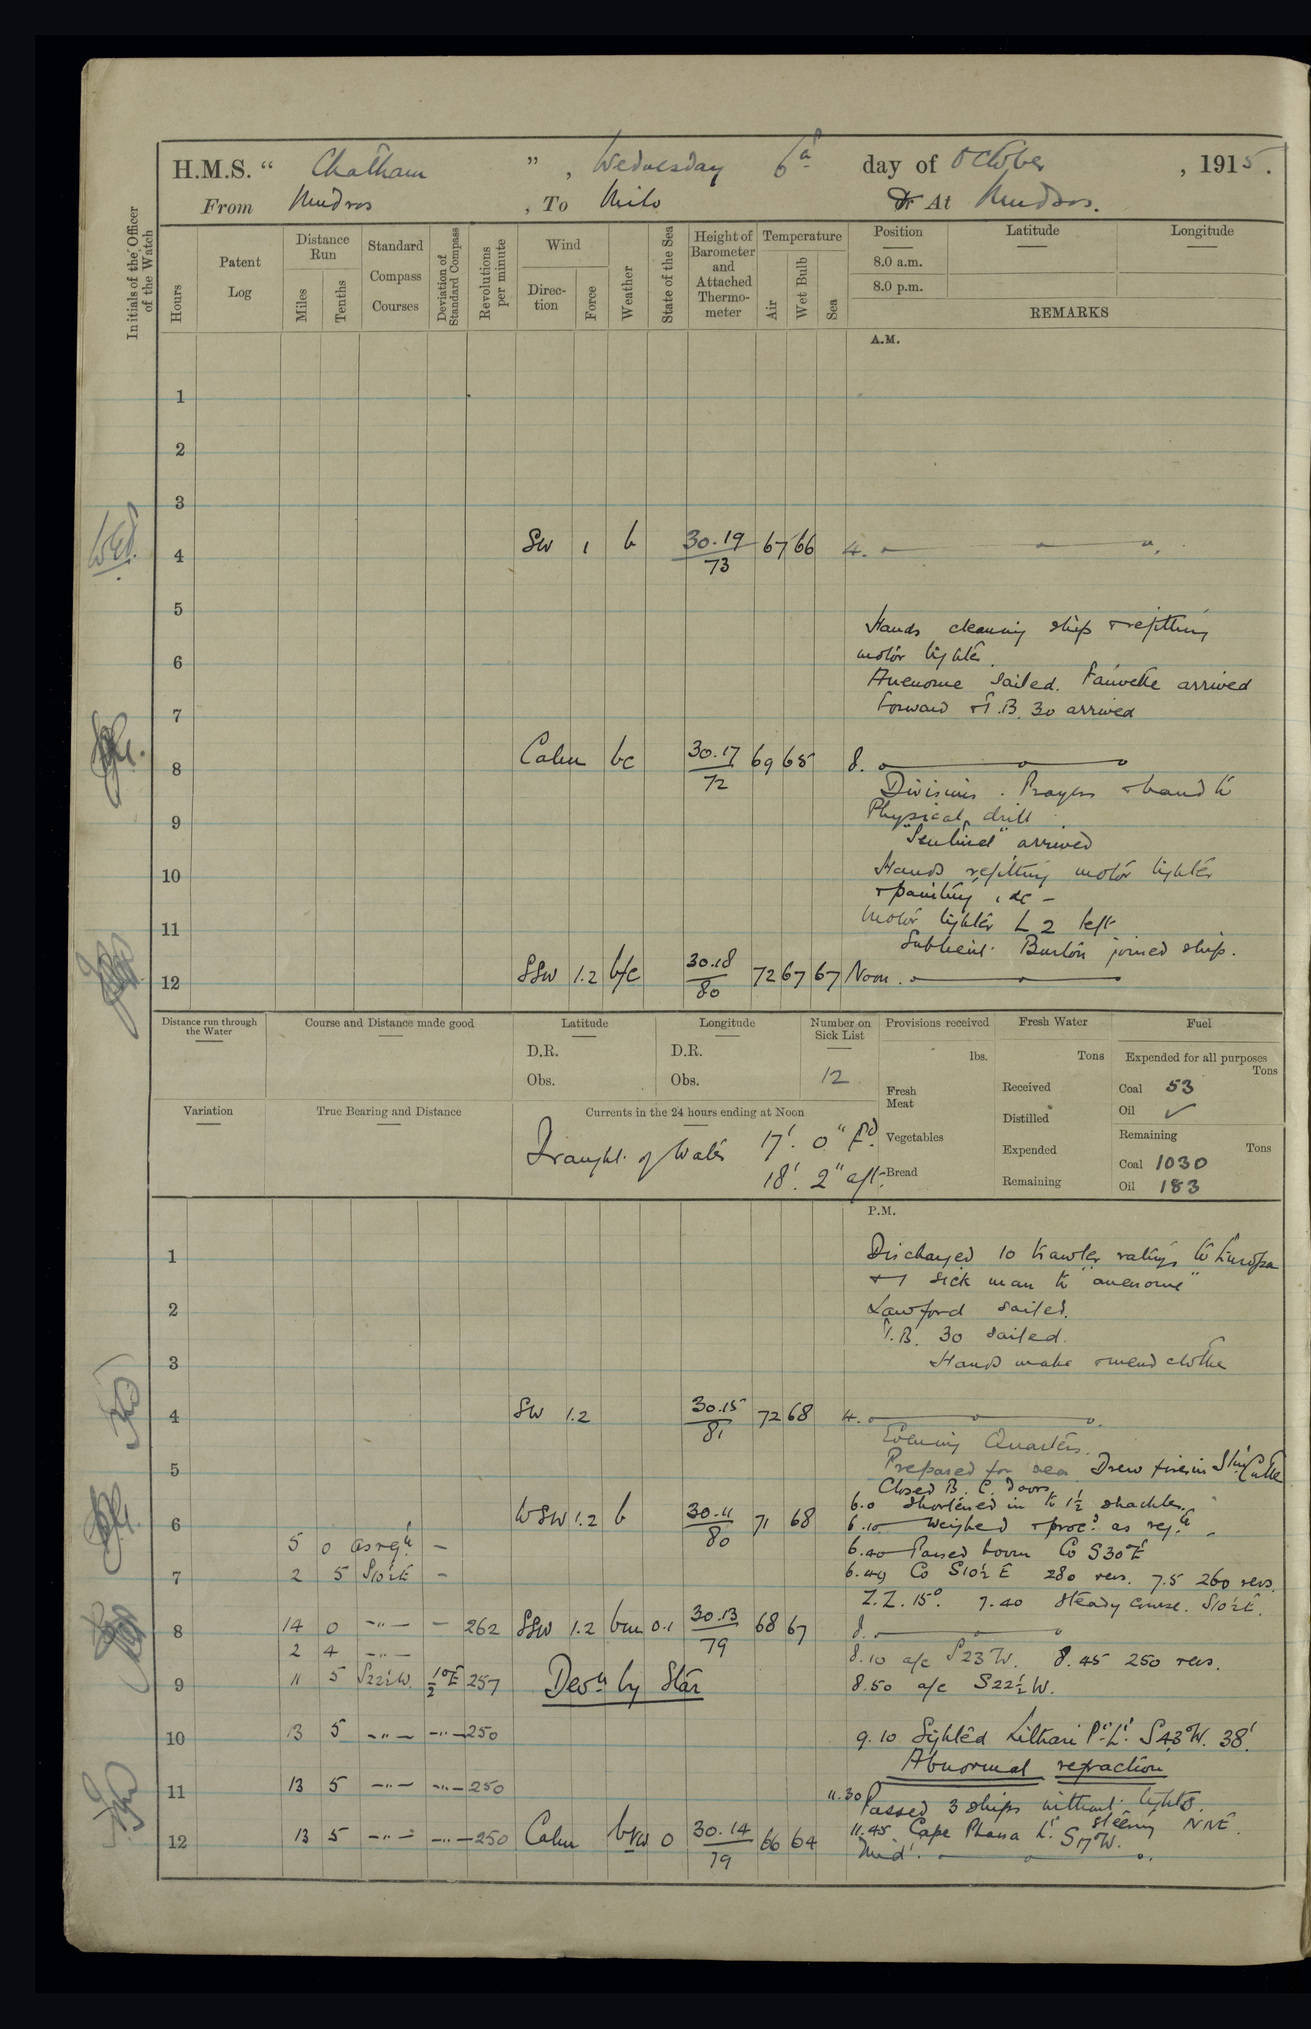 H.M.S. “ Chatham ” , Wednesday 6th day of October , 1915.
From Mudros , To Milo Or At Mudros.
Initials of the Officer of the Watch
Hours
Patent Log
Distance Run
Miles
Tenths
Standard Compass Courses
Deviation of Standard Compass
Revolutions per minute
Wind
Direction
Force
Weather
State of the Sea
Height of Barometer and Attached Thermometer
Temperature
Air
Wet Bulb
Sea
Position Latitude Longitude
8.0 a.m.
8.0 p.m.
REMARKS
A.M.
1
2
3
4 SW 1 b 30.19 67 66 4.
73
5
Hands cleaning ship & refitting
6 motor lighter.
Anenome sailed. Fauvette arrived
7 Forward & T.B. 30 arrived
8 Calm bc 30.17 69 65 8.
72
Divisions. Prayers & hands to
9 Physical drill
"Sentinel" arrived
10 Hands refitting motor lighter
& painting, &c -
11 Motor lighter L 2 left
Sublieut. Burton joined ship.
12 SSW 1.2 b/c 30.18 72 67 67 Noon.
80
Distance run through the Water
Course and Distance made good
Latitude
D.R.
Obs.
Longitude
D.R.
Obs.
Number on Sick List
12
Provisions received
lbs.
Fresh Meat
Vegetables
Bread
Fresh Water
Tons
Received
Distilled
Expended
Remaining
Fuel
Expended for all purposes
Tons
Coal 53
Oil ✓
Remaining
Tons
Coal 1030
Oil 183
Variation
True Bearing and Distance
Currents in the 24 hours ending at Noon
Draught of Water 17'. 0" Fd.
18'. 2" aft.
P.M.
1 Discharged 10 trawler ratings to Europa
& 1 sick man to "anenome"
2 Lawford sailed.
T.B. 30 sailed.
3 Hands make & mend clothes
4 SW 1.2 30.15 72 68 4.
81
Evening Quarters.
5 Prepared for sea. Drew fires in Stm Cutter
Closed B. C. doors
6.0 Shortened in to 1½ shackles.
6 WSW 1.2 b 30.11 71 68 6.10 Weighed & proc.d as req.te
80
5 0 as reqte - 6.40 Passed boom Co S30°E
7 2 5 S10½E - 6.49 Co S10½E 280 revs. 7.5 260 revs.
Z.Z. 15°. 7.40 Steady course. S10½E.
8 14 0 -"- - 262 SSW 1.2 bm 0.1 30.13 68 67 8.
79
2 4 -"- 8.10 a/c S23°W. 8.45 250 revs.
9 11 5 S22½W. ½°E 257 Devn by Star 8.50 a/c S22½W.
10 13 5 -"- -"- 250 9.10 Sighted Lithari Pt. Lt. S43°W. 38'.
Abnormal refraction
11 13 5 -"- -"- 250
11.30 Passed 3 ships without lights.
steering NNE.
11.45 Cape Phassa Lt. S17°W.
12 13 5 -"- -"- 250 Calm 0 30.14 66 64 Midt.
79